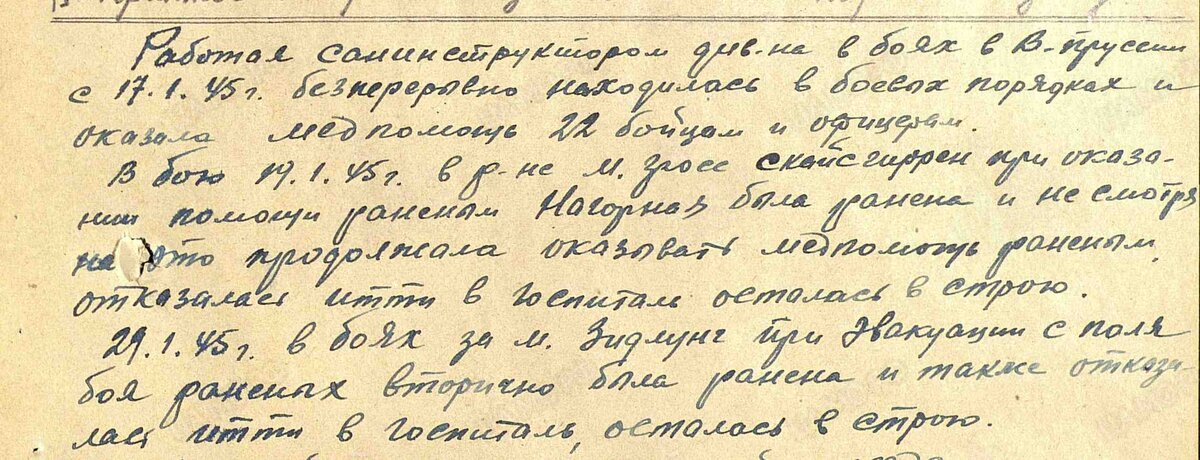 Работая санинструктором див-на в боях в В-Пруссии
с 17.1.45г. безперерывно находилась в боевых порядках и
оказала медпомощь 22 бойцам и офицерам.
В бою 19.1.45г. в р-не м. гросс Скайсгиррен при оказа-
нии помощи раненым Нагорная была ранена и не смотря
на это продолжала оказывать медпомощь раненым,
отказалась итти в госпиталь осталась в строю.
29.1.45г. в боях за м. Зидлунг при эвакуации с поля
боя раненых вторично была ранена и также отказа-
лась итти в госпиталь, осталась в строю.